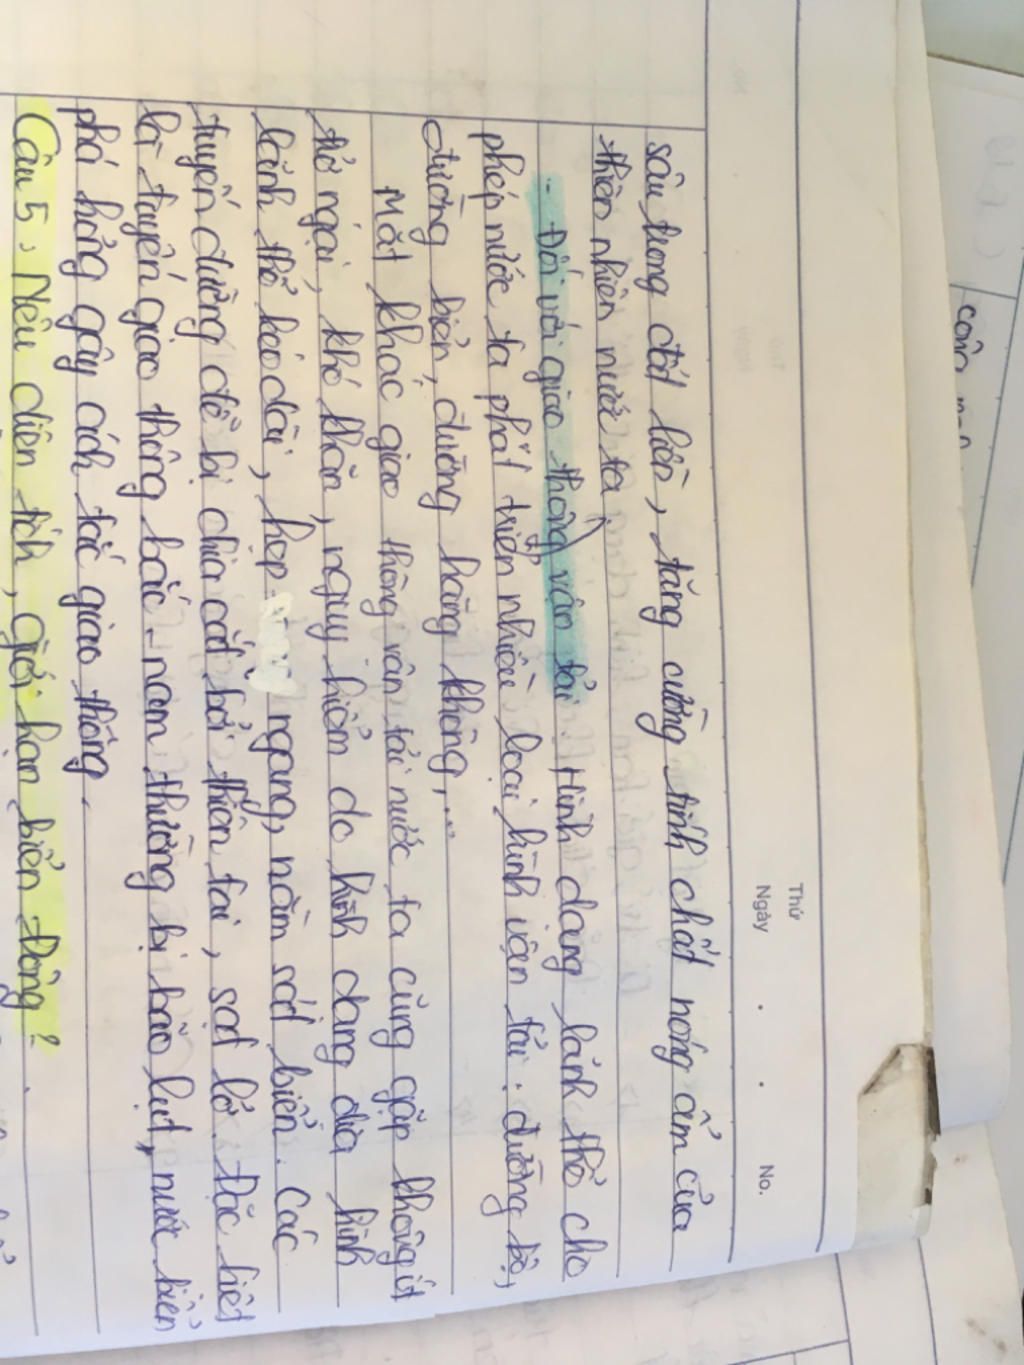 Thứ
Ngày . . No.
sâu trong đất liền, tăng cường tính chất nóng ẩm của
thiên nhiên nước ta.
- Đối với giao thông vận tải: Hình dạng lãnh thổ cho
phép nước ta phát triển nhiều loại hình vận tải: đường bộ,
đường biển, đường hàng không,...
Mặt khác giao thông vận tải nước ta cũng gặp không ít
trở ngại, khó khăn, nguy hiểm do hình dạng địa hình
lãnh thổ kéo dài, hẹp ngang, nằm sát biển. Các
tuyến đường dễ bị chia cắt bởi thiên tai, sạt lở. Đặc biệt
là tuyến giao thông bắc - nam thường bị bão lụt, nước biển
phá hỏng gây ách tắc giao thông.
Câu 5: Nêu diện tích, giới hạn biển Đông?